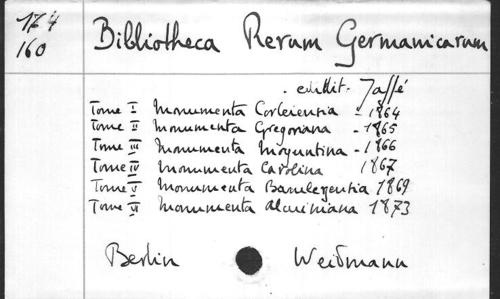 174
160
Bibliotheca Rerum Germanicarum
. edidit. Jaffé
Tome I Monumenta Corbeiensia - 1864
Tome II Monumenta Gregoriana - 1865
Tome III Monumenta Moguntina - 1866
Tome IV Monumenta Carolina 1867
Tome V Monumenta Bambergensia 1869
Tome VI Monumenta Alcuiniana 1873
Berlin Weidmann